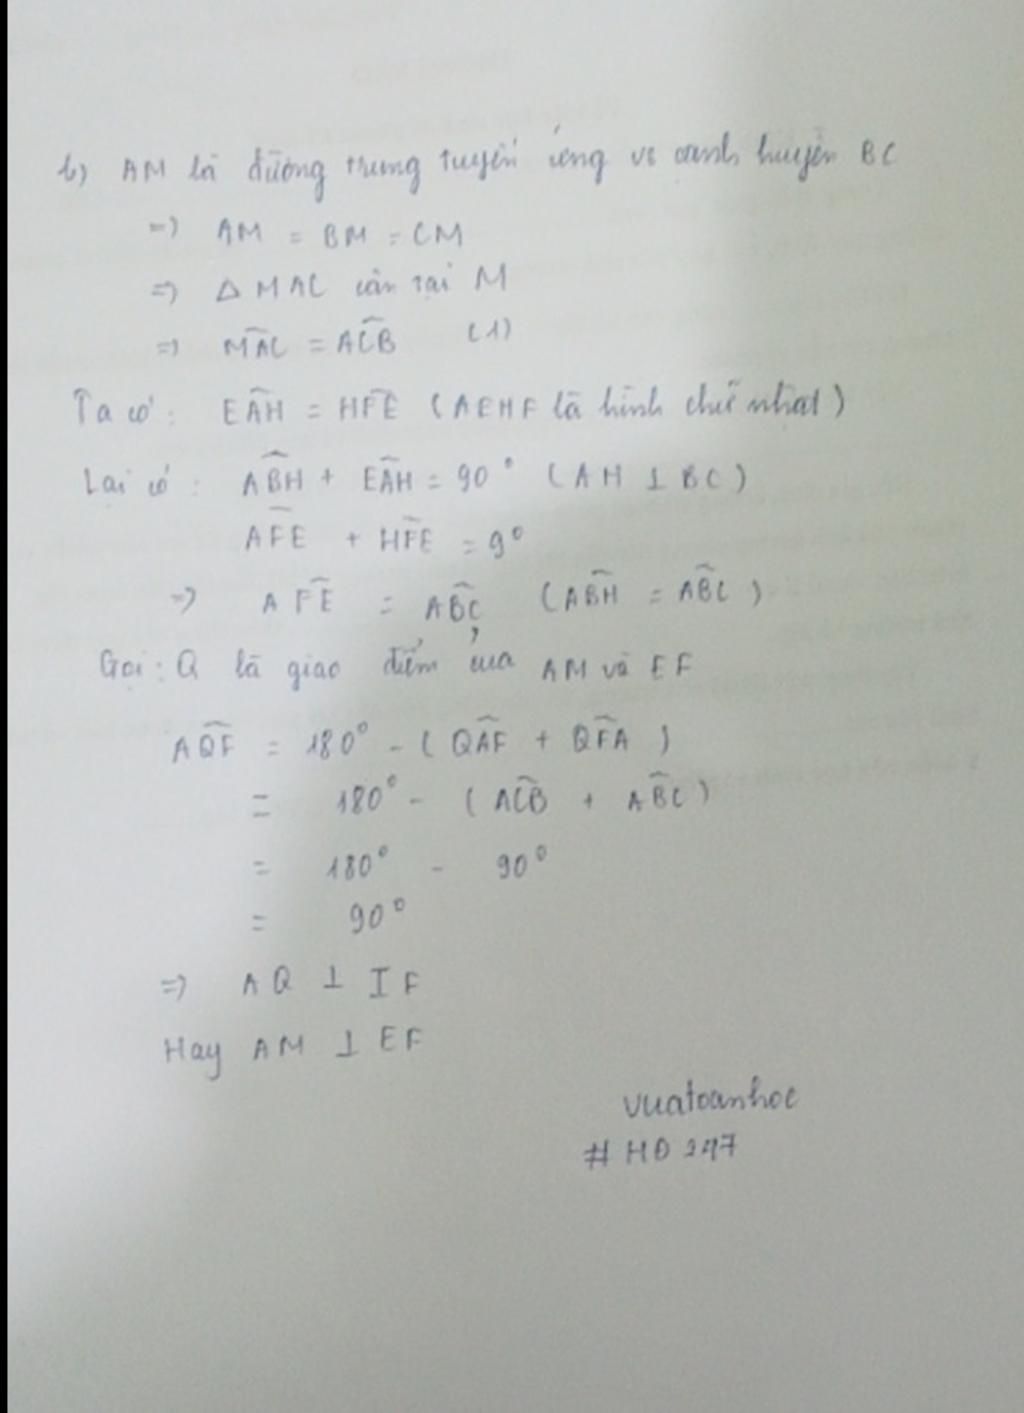 b) AM là đường trung tuyến ứng vs cạnh huyền BC
=> AM = BM = CM
=> Δ MAC cân tại M
=> MÂC = AĈB (1)
Ta có: EÂH = HF̂E (AEHF là hình chữ nhật)
Lại có: AB̂H + EÂH = 90° (AH ⊥ BC)
AF̂E + HF̂E = 9°
=> AF̂E = AB̂C (AB̂H = AB̂C)
Gọi: Q là giao điểm của AM và EF
AQ̂F = 180° - (QÂF + QF̂A)
= 180° - (AĈB + AB̂C)
= 180° - 90°
= 90°
=> AQ ⊥ IF
Hay AM ⊥ EF
vuatoanhoc
# HD 247